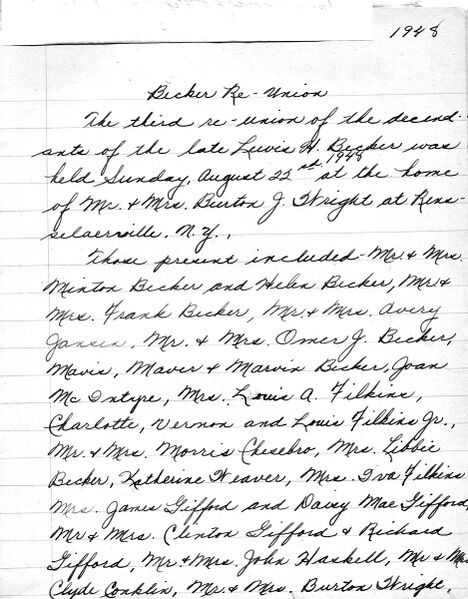 1948
Becker Re-Union
The third re-union of the decend-
ants of the late Lewis H. Becker was
held Sunday, August 22nd 1948 at the home
of Mr. & Mrs. Burton J. Wright at Rens-
selaerville. N.Y.,
Those present included - Mr. & Mrs.
Minton Becker and Helen Becker, Mr. &
Mrs. Frank Becker, Mr. & Mrs. Avery
Jansen, Mr. & Mrs. Omer J. Becker,
Mavis, Maver & Marvin Becker, Joan
McIntyre, Mrs. Louis A. Filkins,
Charlotte, Vernon and Louis Filkins Jr.,
Mr. & Mrs. Morris Chesebro, Mrs. Libbie
Becker, Katherine Weaver, Mrs. Iva Filkins
Mrs. James Gifford and Daisy Mae Gifford,
Mr & Mrs. Clinton Gifford & Richard
Gifford, Mr. & Mrs. John Haskell, Mr & Mrs
Clyde Conklin, Mr. & Mrs. Burton Wright,